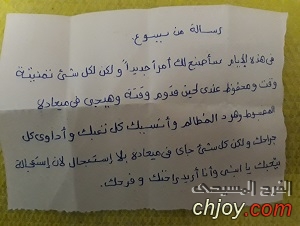 رسالة من يسوع
فى هذه الأيام سأصنع لك أمراً جديداً ولكن لكل شئ تمنيتة
وقت ومحفوظ عندى لحين قدوم وقتة وهيجى فى ميعادة
المضبوط وهرد المظالم وأنسيك كل تعبك وأداوى كل
جراحك ولكن كل شئ جاى فى ميعادة بلا إستعجال لان إستعجالك
يتعبك يا ابنى وأنا أريد راحتك و فرحك
الفرح المسيحى
chjoy.com